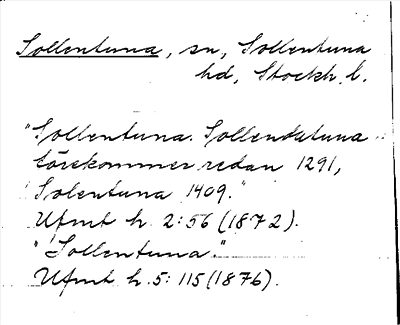 Sollentuna, sn, Sollentuna
hd, Stockh. l.
"Sollentuna. Sollendatuna
förekommer redan 1291,
Solentuna 1409."
Ufmt h. 2: 56 (1872).
"Sollentuna."
Ufmt h. 5: 115 (1876).